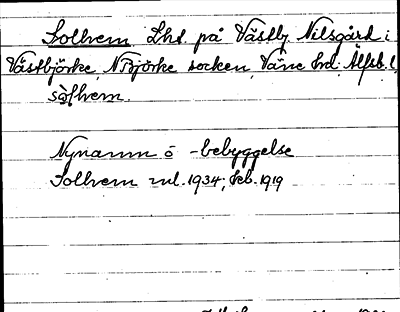 Solhem Lht. på Västbj Nilsgård i
Västbjörke, N Björke socken, Väne hd. Älfsb. l.
sòlhem.
Nynamn o -bebyggelse
Solhem ml. 1934; feb. 1919